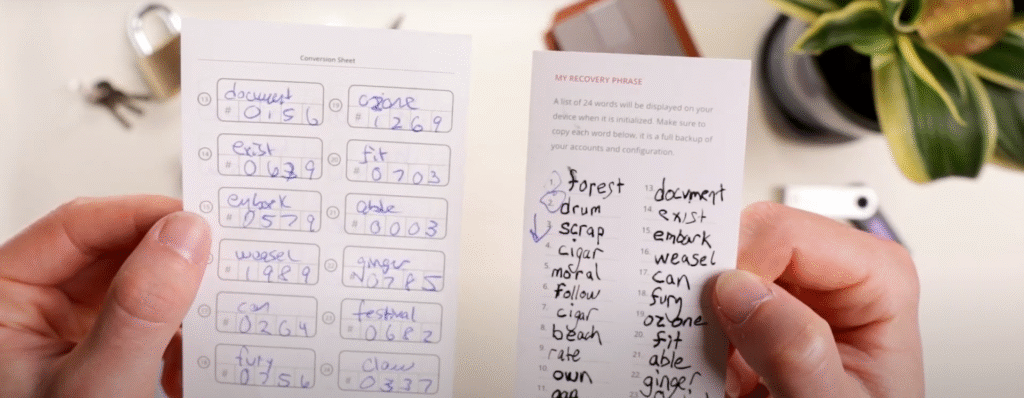 Conversion Sheet
13 document
# 0156
19 ozone
# 1269
14 exist
#
20 fit
# 0703
15 embark
# 0579
21 able
# 0003
weasel
# 1989
22 ginger
0785
17 can
# 0264
23 festival
# 0682
18 fury
# 0756
24 claw
# 0337
MY RECOVERY PHRASE
A list of 24 words will be displayed on your
device when it is initialized. Make sure to
copy each word below, it is a full backup of
your accounts and configuration.
1. forest
2. drum
3. scrap
4. cigar
5. mostral
6. follow
7. cigar
8. beach
9. rate
10. own
11.
13. document
14. exist
15. embark
16. weasel
17. can
18. fury
19. ozone
20. fit
21. able
22. ginger
23.